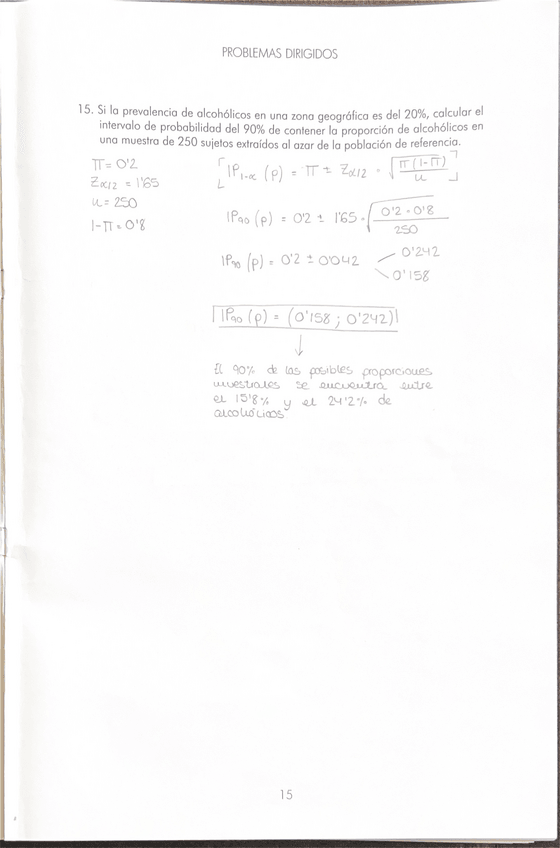 PROBLEMAS DIRIGIDOS
15. Si la prevalencia de alcohólicos en una zona geográfica es del 20%, calcular el
intervalo de probabilidad del 90% de contener la proporción de alcohólicos en
una muestra de 250 sujetos extraídos al azar de la población de referencia.
π = 0'2
Zα/2 = 1'65
n = 250
1-π = 0'8
[IP1-α (p) = π ± Zα/2 · √(π(1-π)/n)]
IP90 (p) = 0'2 ± 1'65 · √(0'2 · 0'8/250)
IP90 (p) = 0'2 ± 0'042
0'242
0'158
IP90 (p) = (0'158 ; 0'242)
↓
El 90% de las posibles proporciones
muestrales se encuentra entre
el 15'8% y el 24'2% de
alcohólicos
15